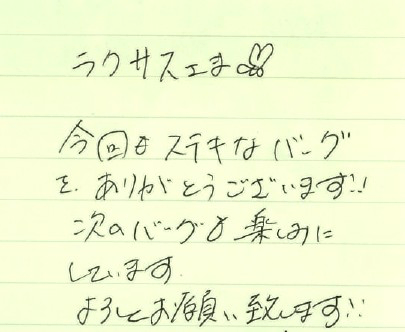 ラクサスさま
今回もステキなバッグ
を、ありがとうございます!!
次のバッグも楽しみに
しています。
よろしくお願い致します!!